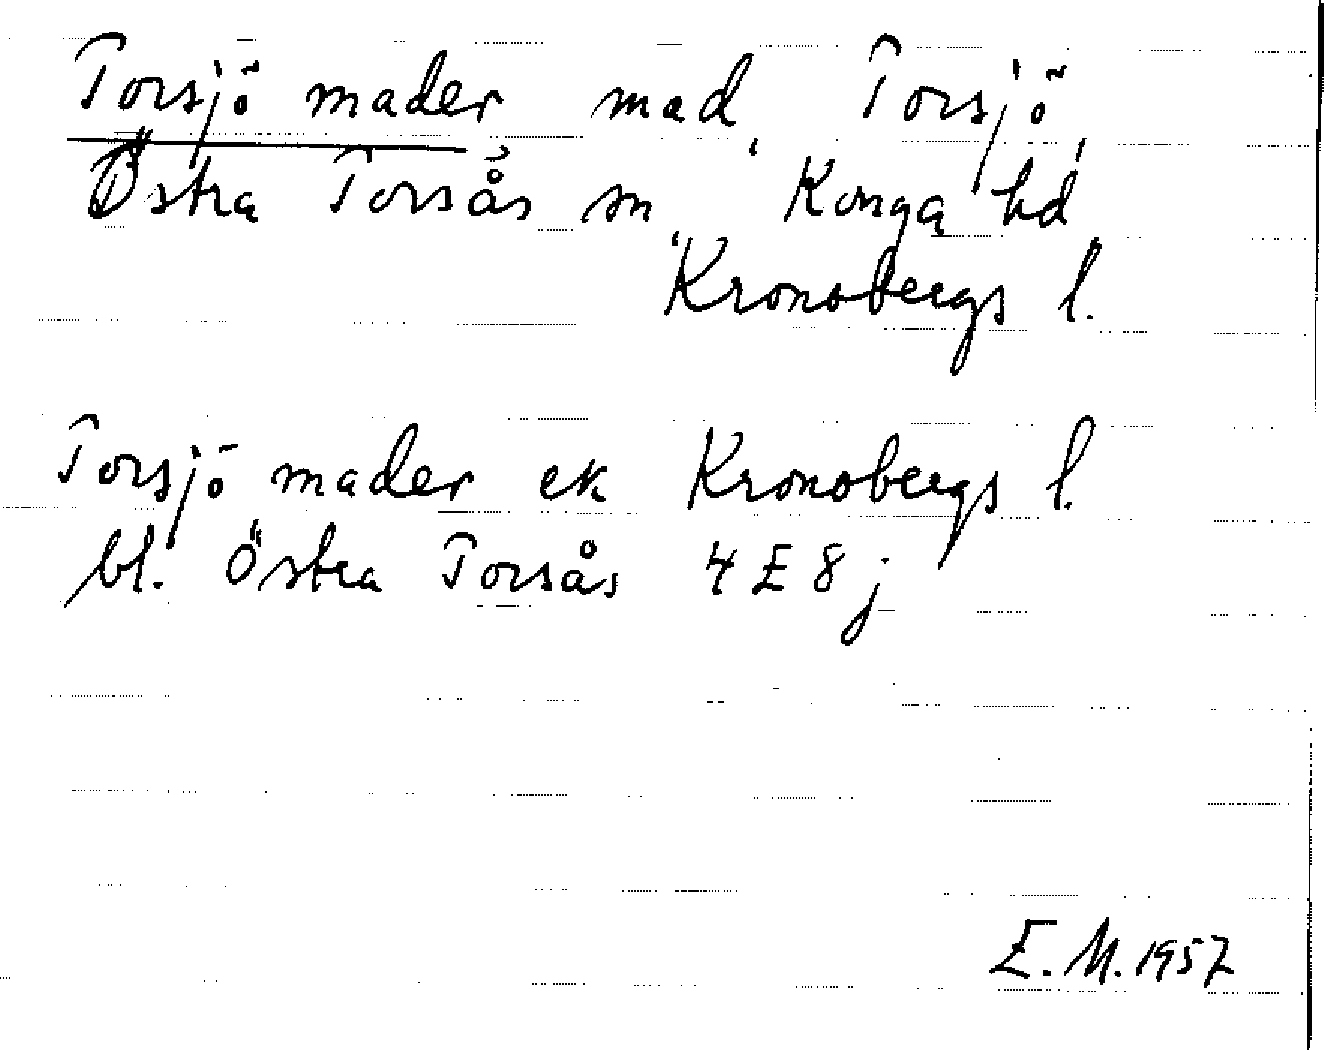 Torsjö mader mad, Torsjö,
Östra Torsås sn, Konga hd,
Kronobergs l.
Torsjö mader ek Kronobergs l.
bl. Östra Torsås 4E8j
E.M. 1957